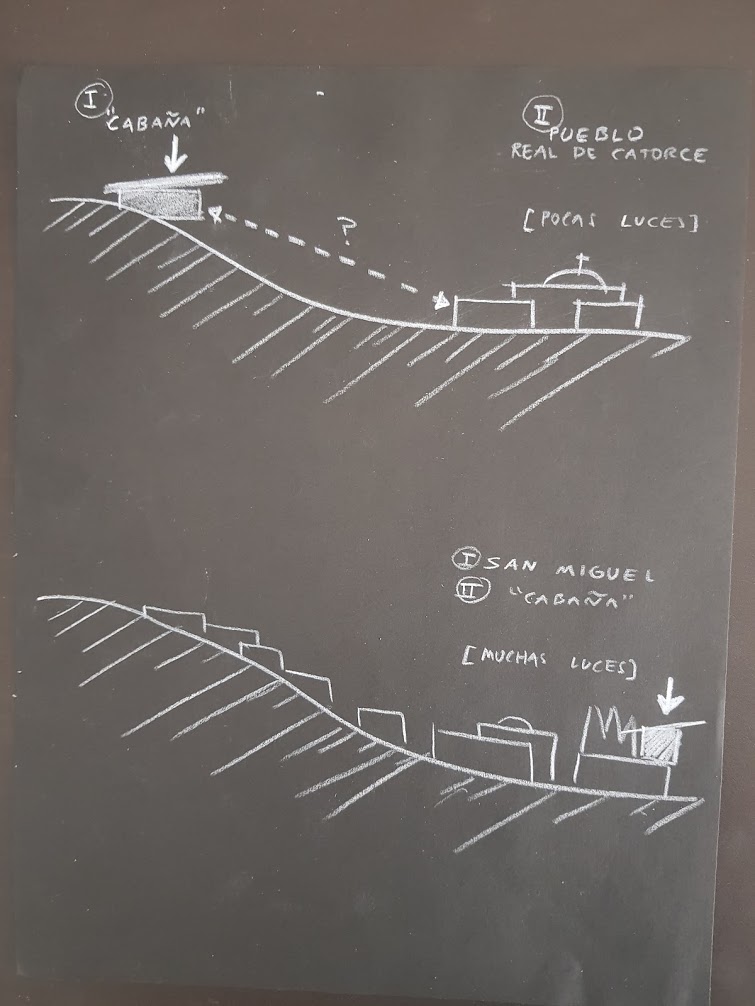 I
"CABAÑA"
II
PUEBLO
REAL DE CATORCE
[POCAS LUCES]
?
I SAN MIGUEL
II "CABAÑA"
[MUCHAS LUCES]